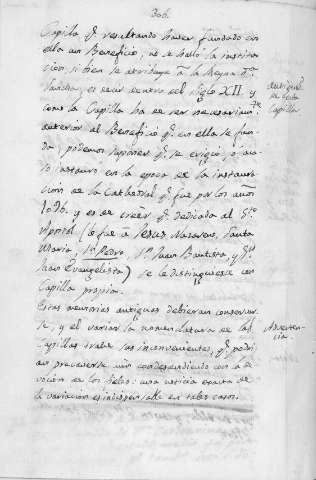 306.
Capilla q.e resultando haver fundado en
ella un Beneficio, no se halló la institu-
cion, si bien se atribuye à la Reyna D.ª
Sancha, es decir dentro del siglo XII. y
como la Capilla ha de ser necesariam.te
anterior al Beneficio q.e en ella se fun-
da, podemos suponer q.e se erigió, o aca-
so instauro en la epoca de la instaura-
cion de la Cathedral q.e fue por los años
1090. y es de creer q.e dedicada al S.to
Apostol (lo fue à Jesus Nazareno, Santa
Maria, S.n Pedro, S.n Juan Bautista, y S.n
Juan Evangelista) se le distinguiese con
Capilla propia.
Estas memorias antiguas debieran conservar-
se, y el variar la nomenclatura de las
Capillas trahe sus inconvenientes, q.e podri-
an precaverse aun condescendiendo con la de-
vocion de los fieles: una noticia exacta de
la variacion es indispensable en tales casos.
de esta
Capilla
Adverten-
cia